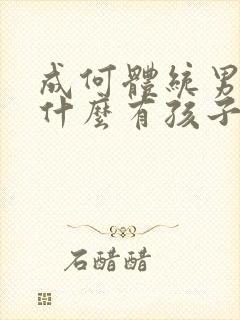 成何體統男
什麼有孩子
石醋醋